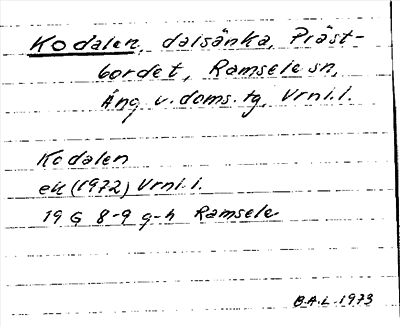 Kodalen, dalsänka, Präst-
bordet, Ramsele sn,
Ång v. doms. tg, Vrnl. l.
Kodalen
ek (1972) Vrnl. l.
19 G 8-9 g-h Ramsele
B.A.L. 1973